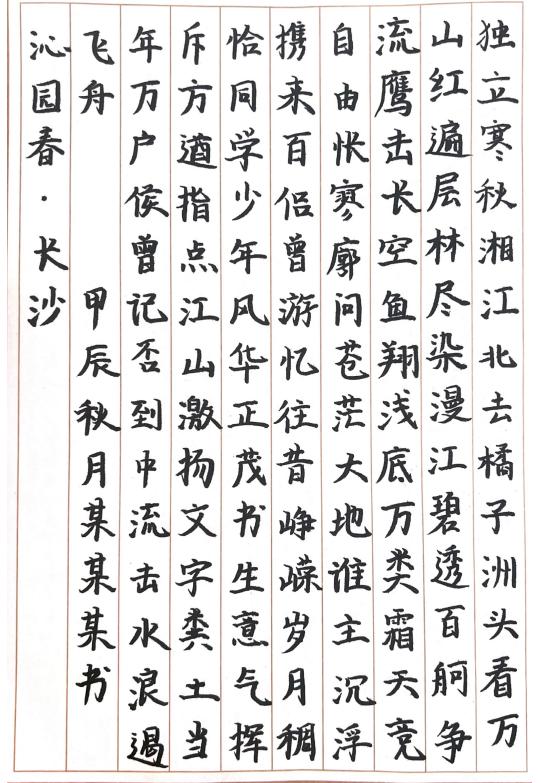 独立寒秋湘江北去橘子洲头看万
山红遍层林尽染漫江碧透百舸争
流鹰击长空鱼翔浅底万类霜天竞
自由怅寥廓问苍茫大地谁主沉浮
携来百侣曾游忆往昔峥嵘岁月稠
恰同学少年风华正茂书生意气挥
斥方遒指点江山激扬文字粪土当
年万户侯曾记否到中流击水浪遏
飞舟 甲辰秋月某某某书
沁园春·长沙